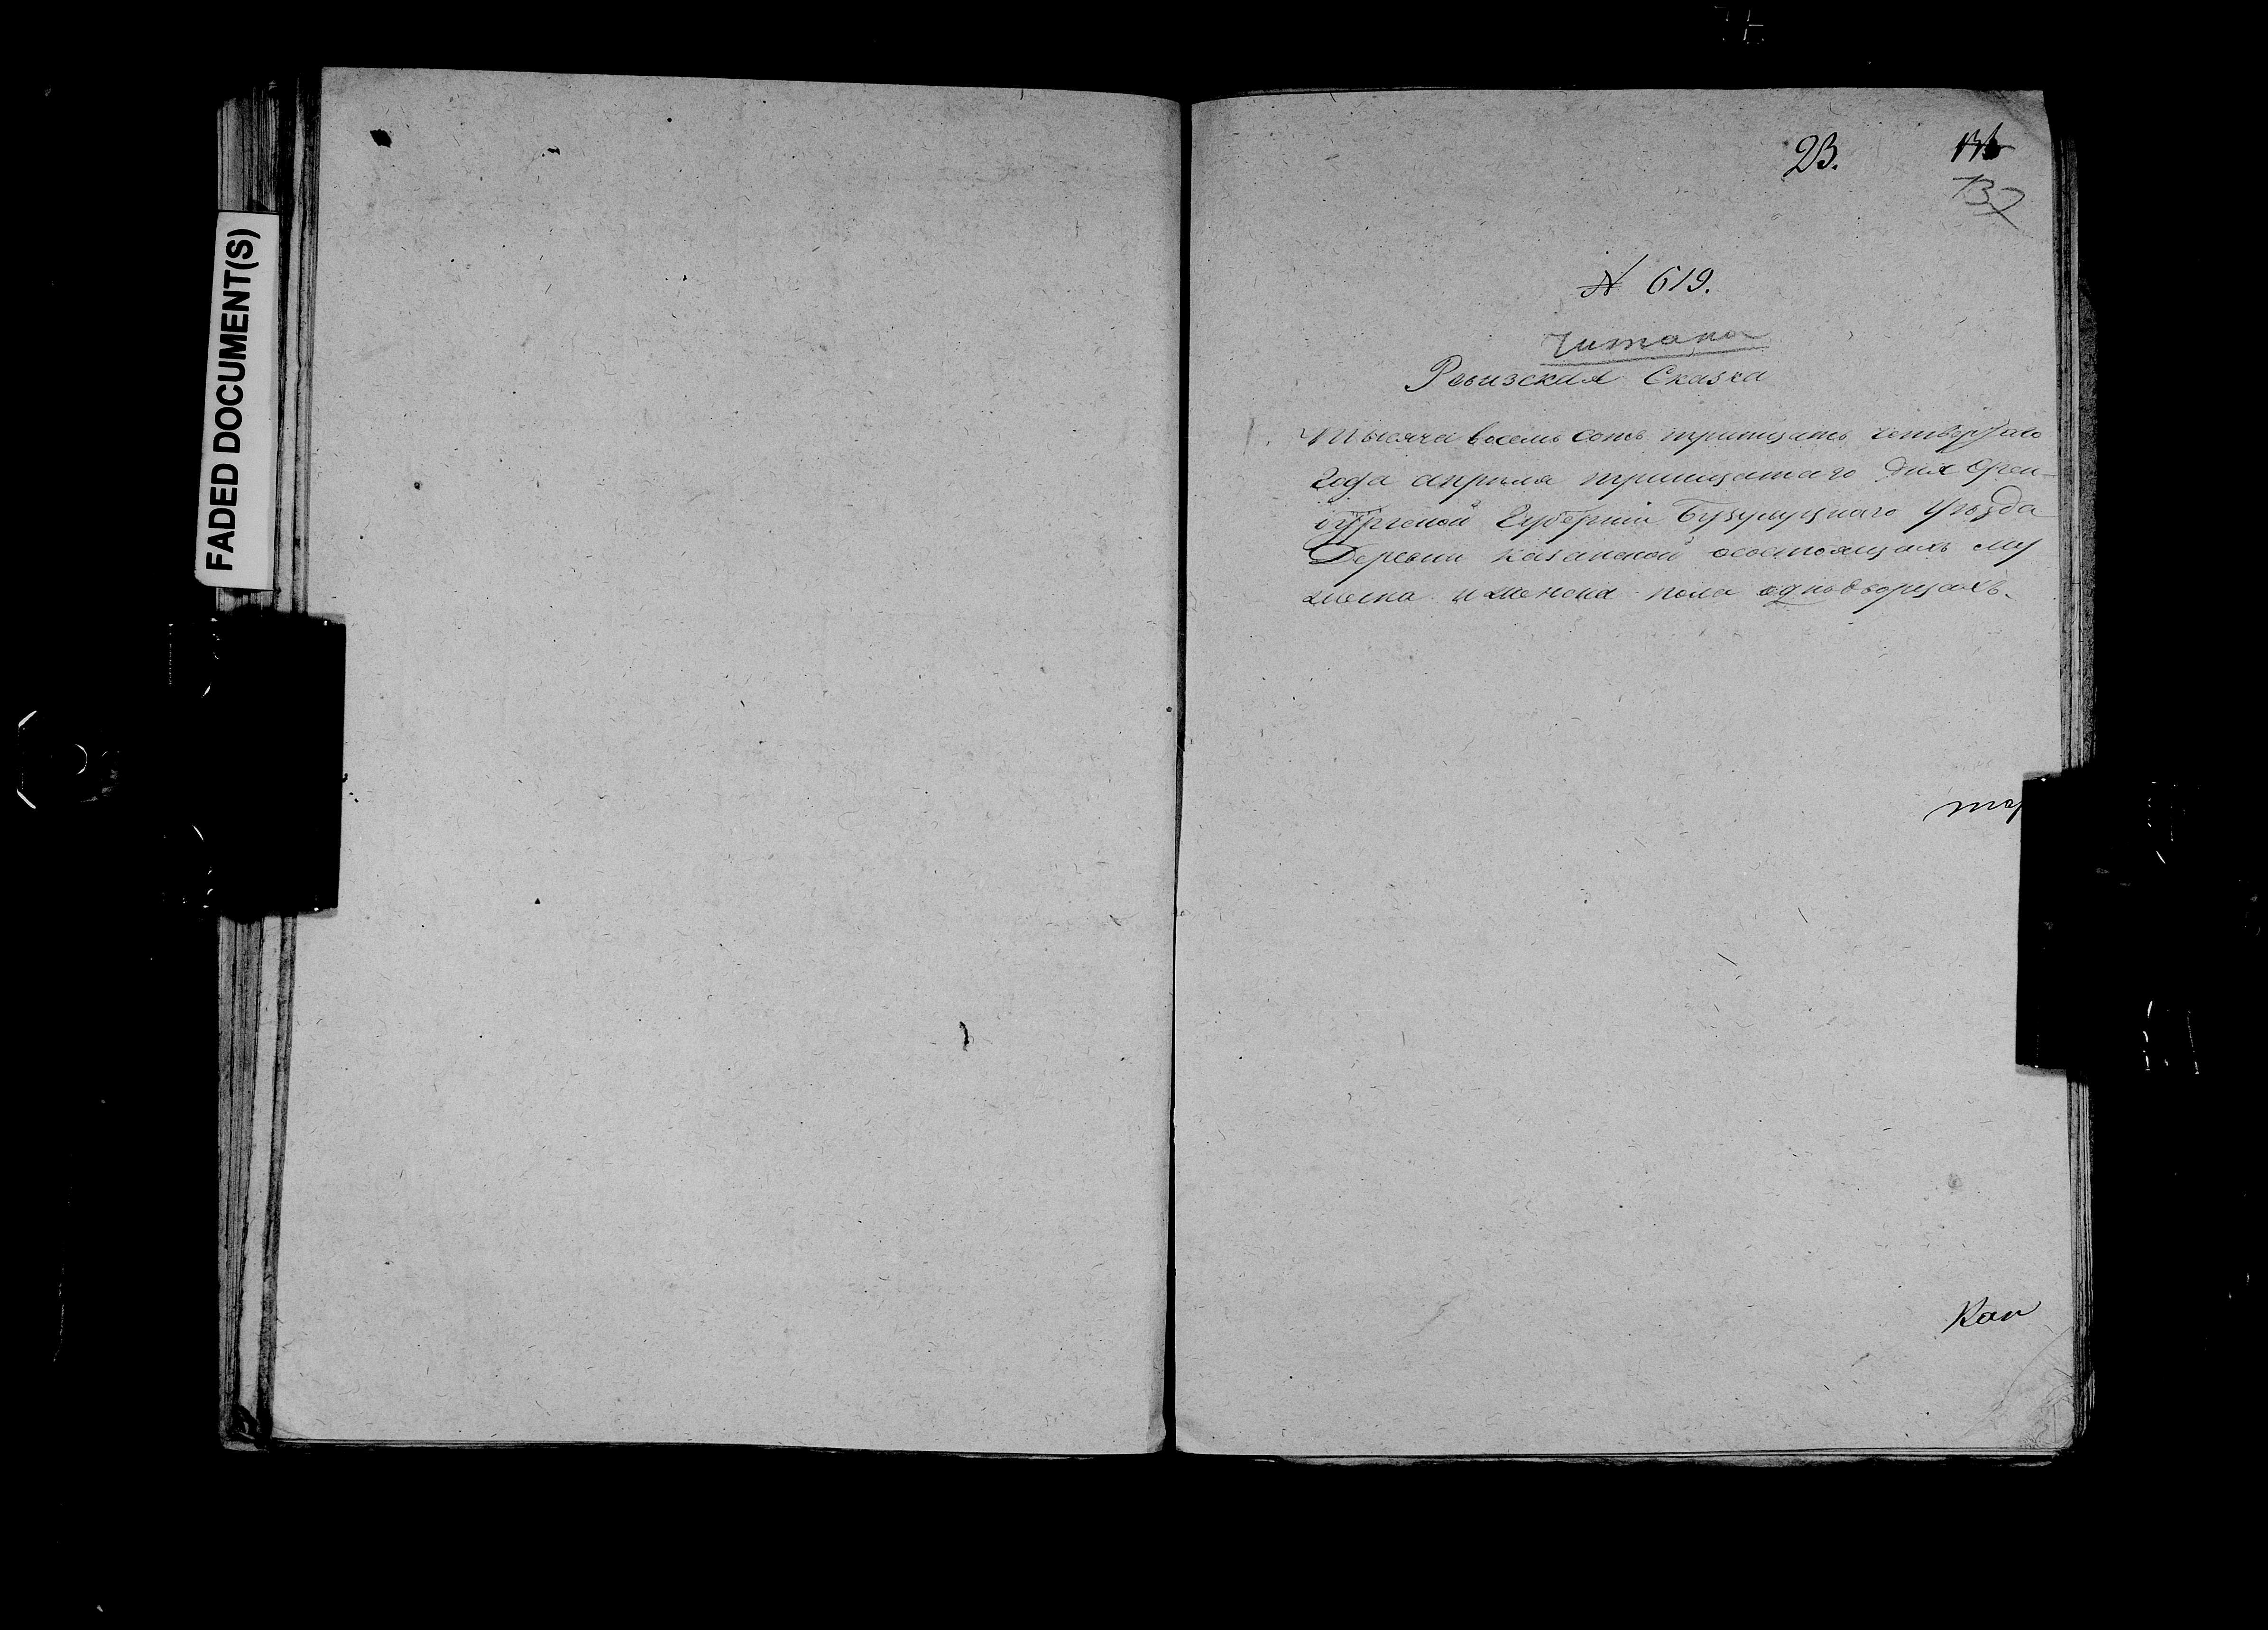 FADED DOCUMENT(S)
23.
137
№ 619.
читана
Ревизская Сказка
Тысяча восемь сотъ тритцать четвертаго
Года апреля тритцатаго дня Орен-
бургской Губернии Бузулуцкаго уѣзда
Деревни казанской осостоящихъ му
жеска и женска пола однодворцахъ.
Кап